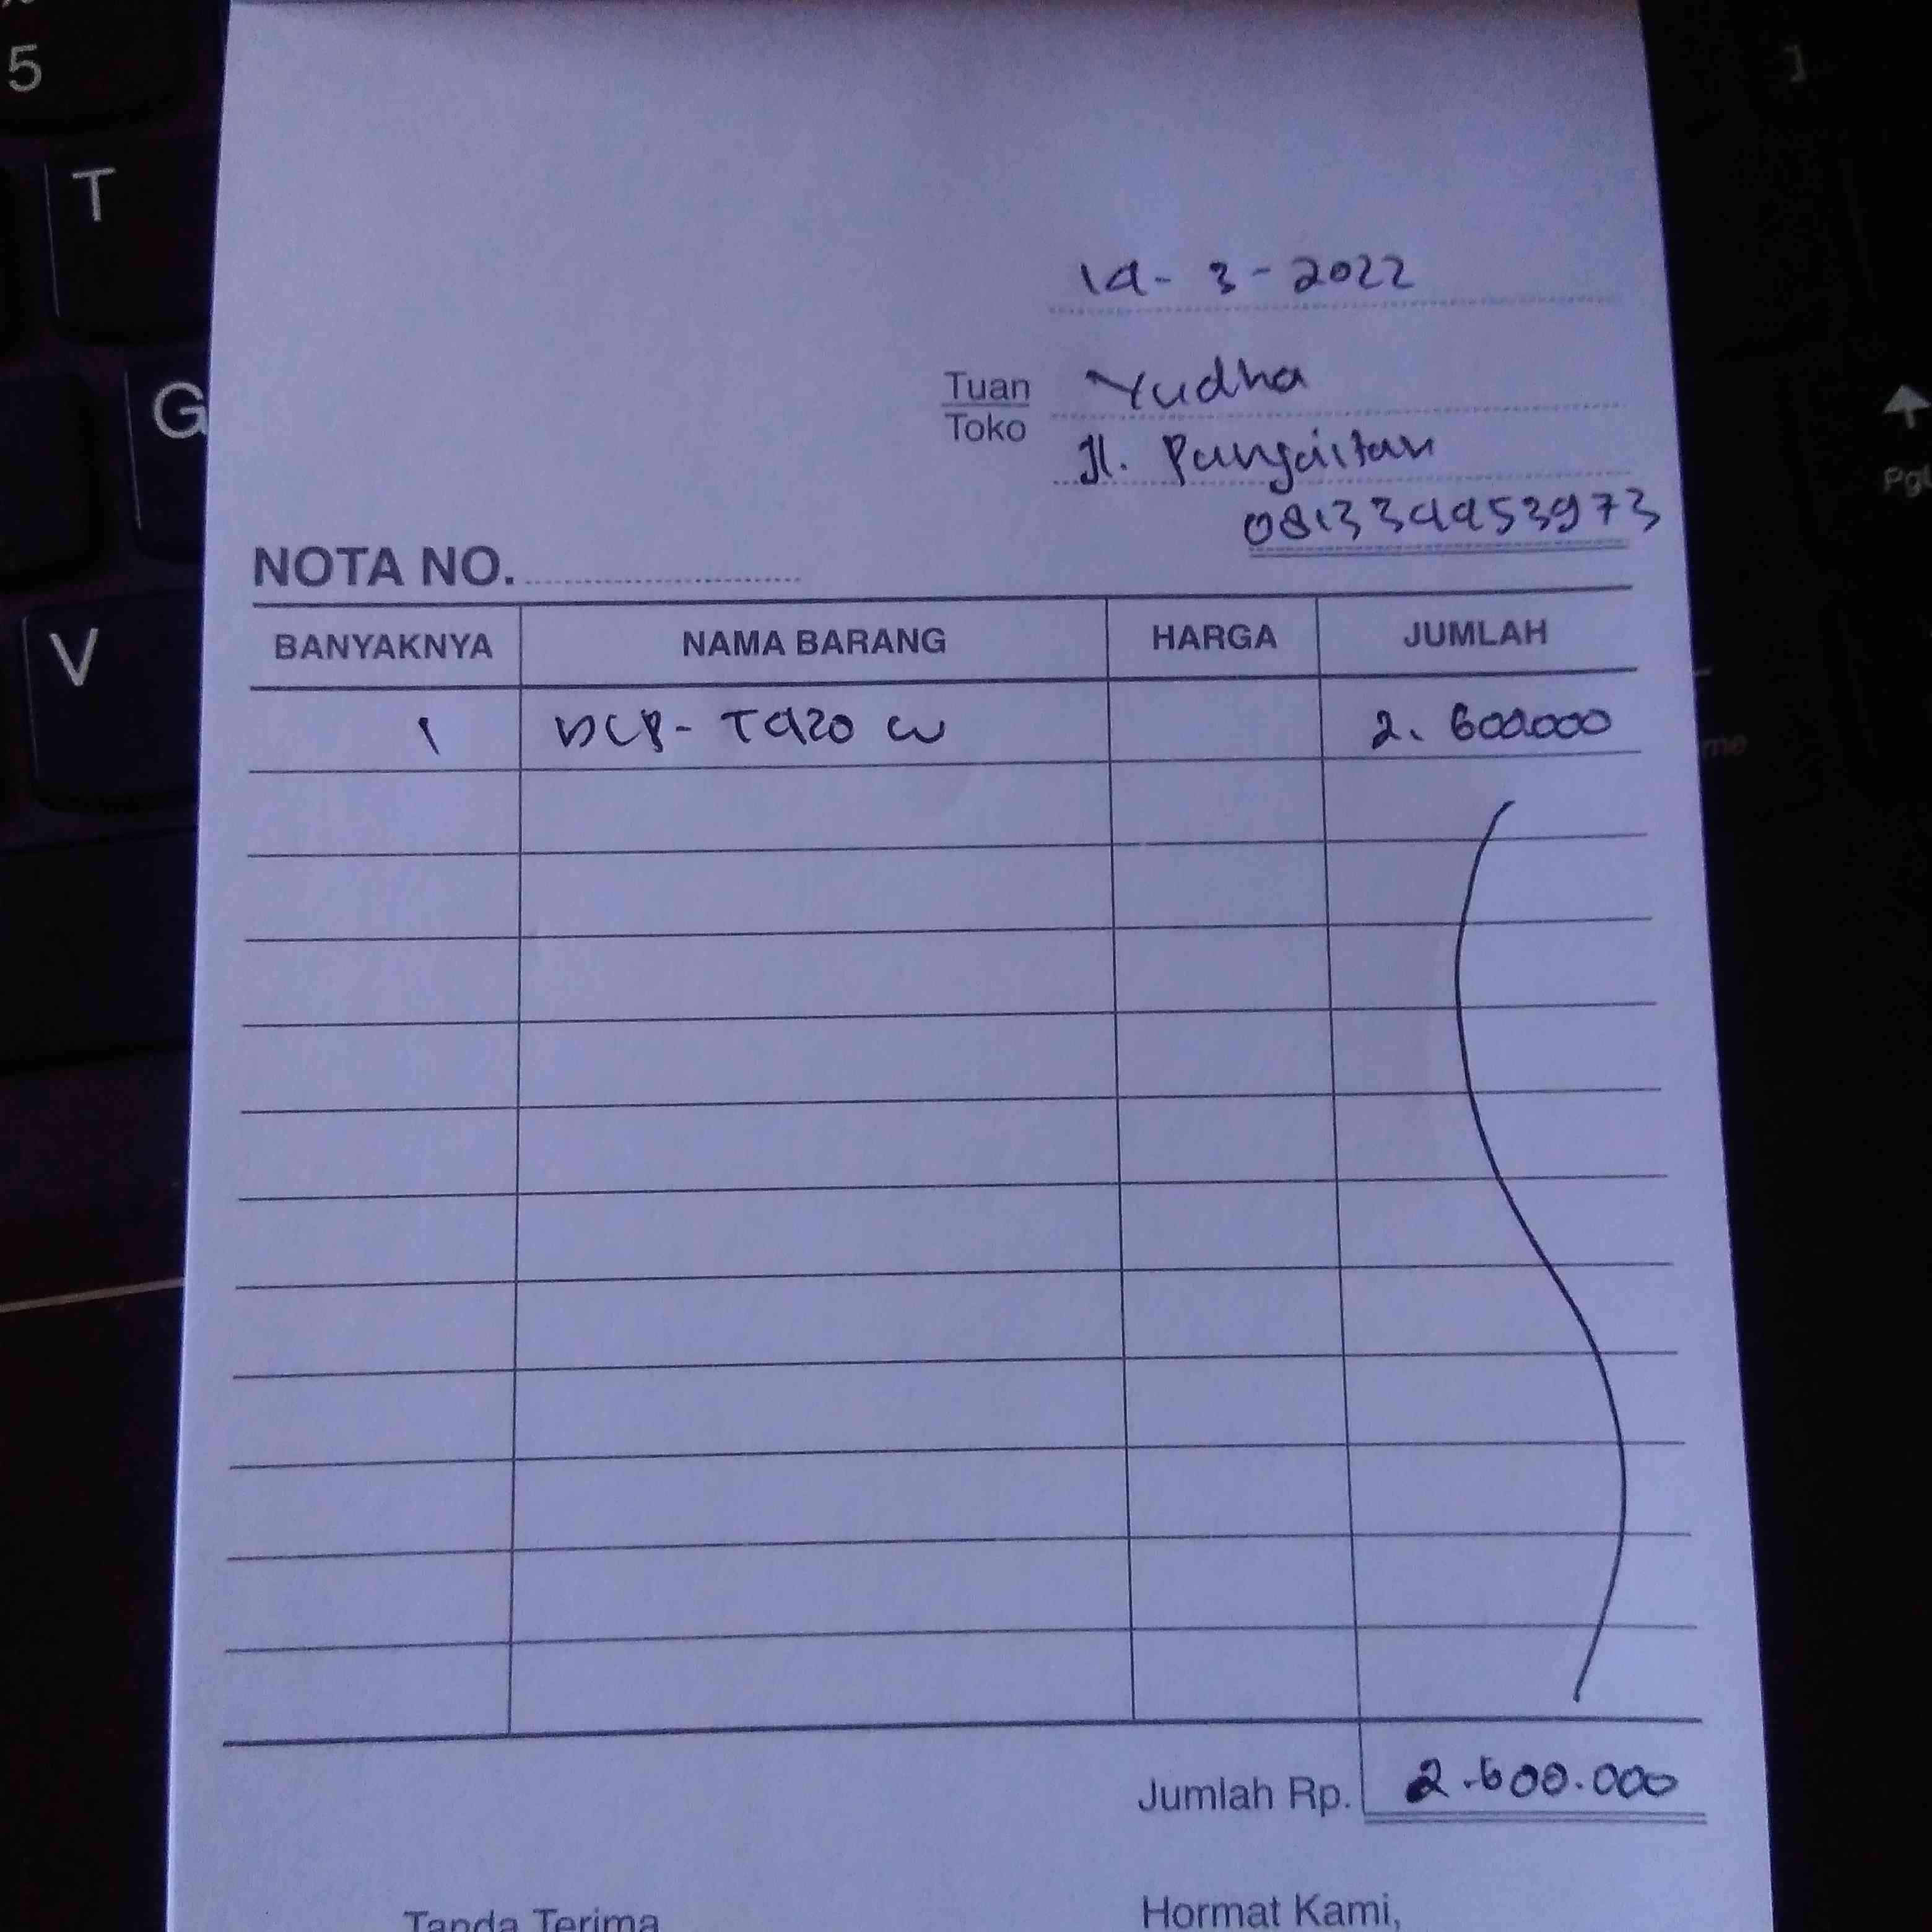 5
T
G
V
]
14-3-2022
Tuan
Toko
Yudha
Jl. Panjaitan
081334453973
NOTA NO.
BANYAKNYA NAMA BARANG HARGA JUMLAH
1 DCP-T420 W 2.600.000
Jumlah Rp. 2.600.000
Tanda Terima
Hormat Kami,